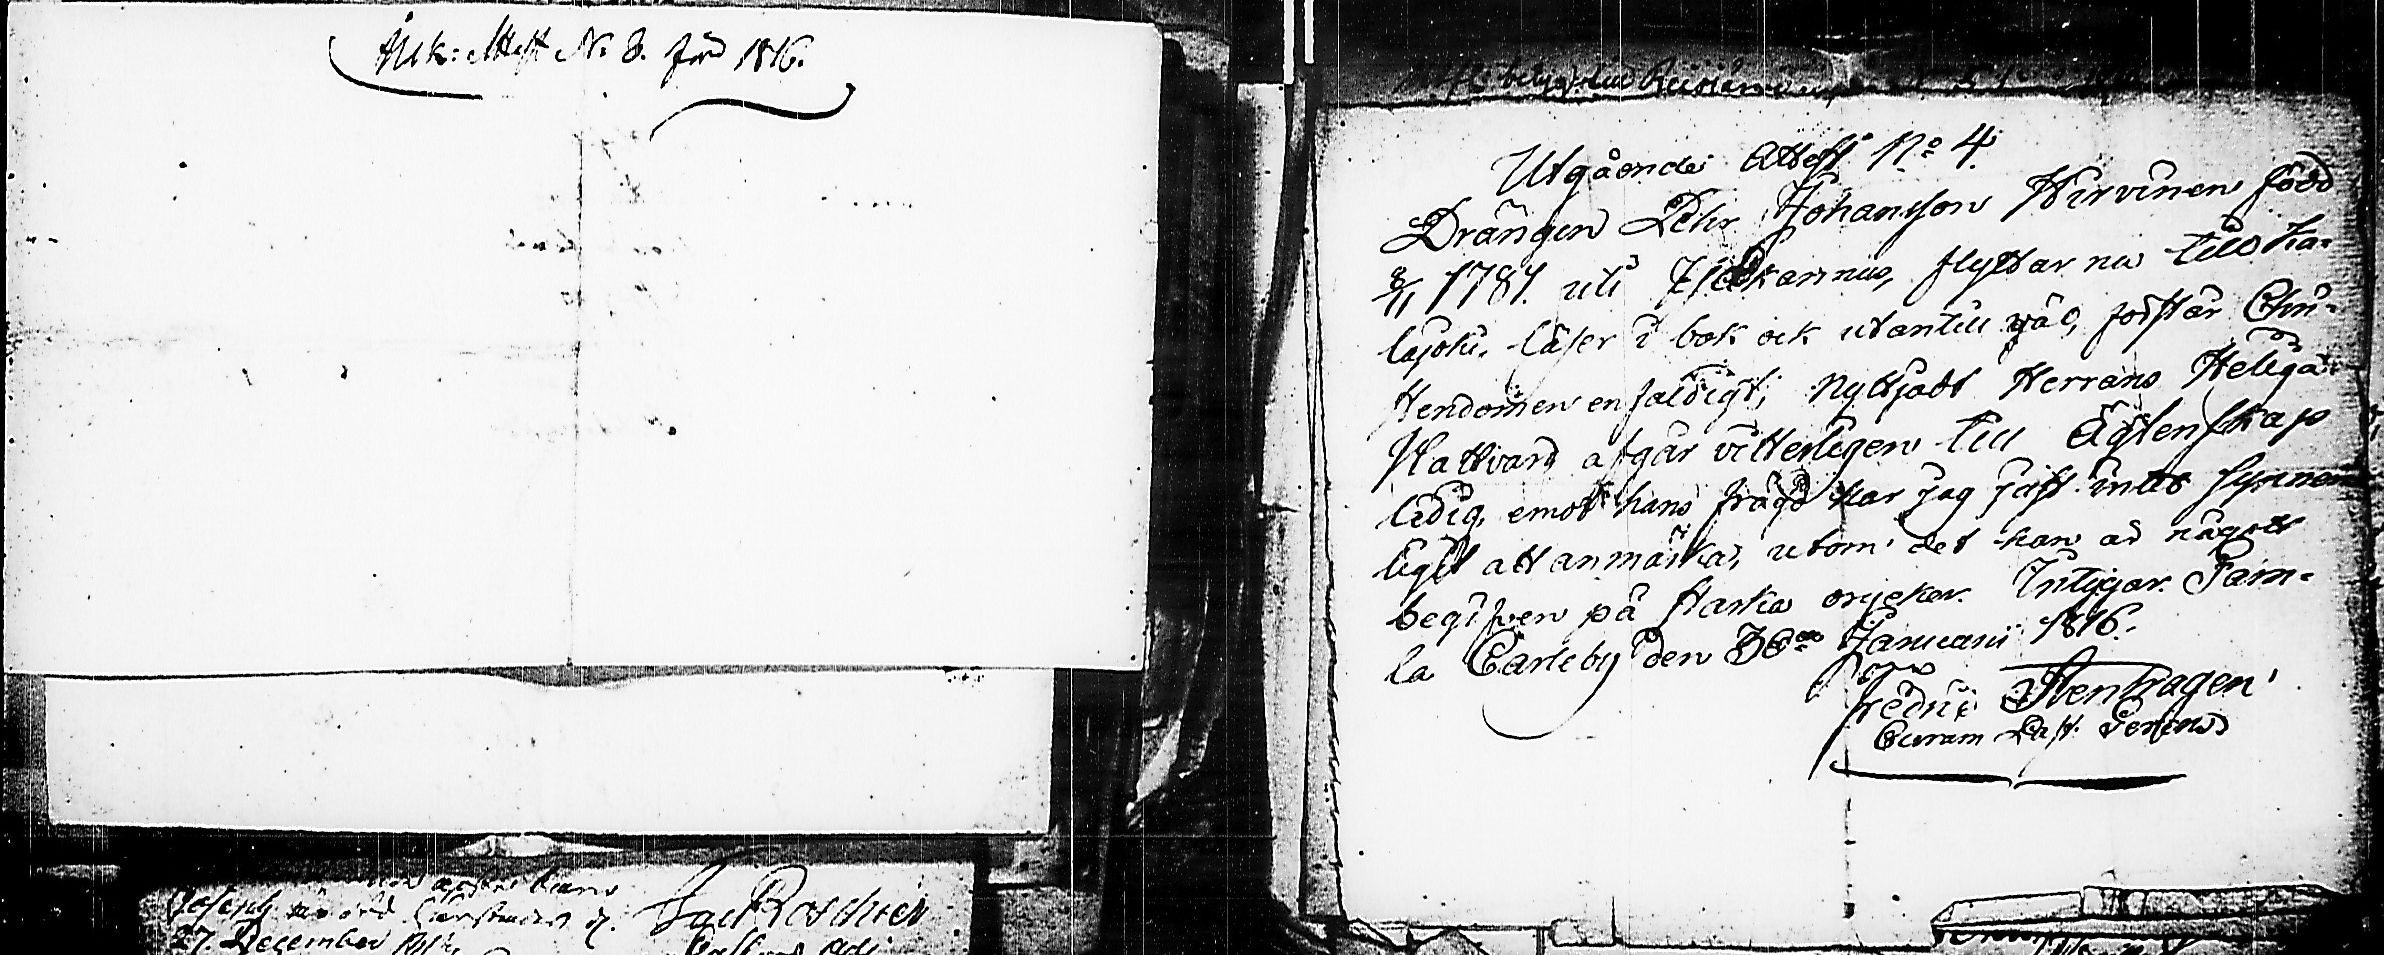 Ink: Attest No 8. för 1816.
Utgående Attest No 4.
Drängen Pehr Johansson Hirvinen född
8/11 1784. uti Ylikannus, flyttar nu till Ka-
lajoki. läser i bok ock utantill väl, förstår Chri-
stendomen enfaldigt, Nyttjadt Herrans Heliga
Nattvard afgår vitterligen till Ägtenskap
ledig, emot hans frägd har jag just intet synner-
ligit att anmärka, utom det han är något
begifven på starka drycker. Intygar Gam-
la Carleby den 30de Januarii 1816.
Fredric Stenhagen
Curam Past. Gerens
Joseph
27. December